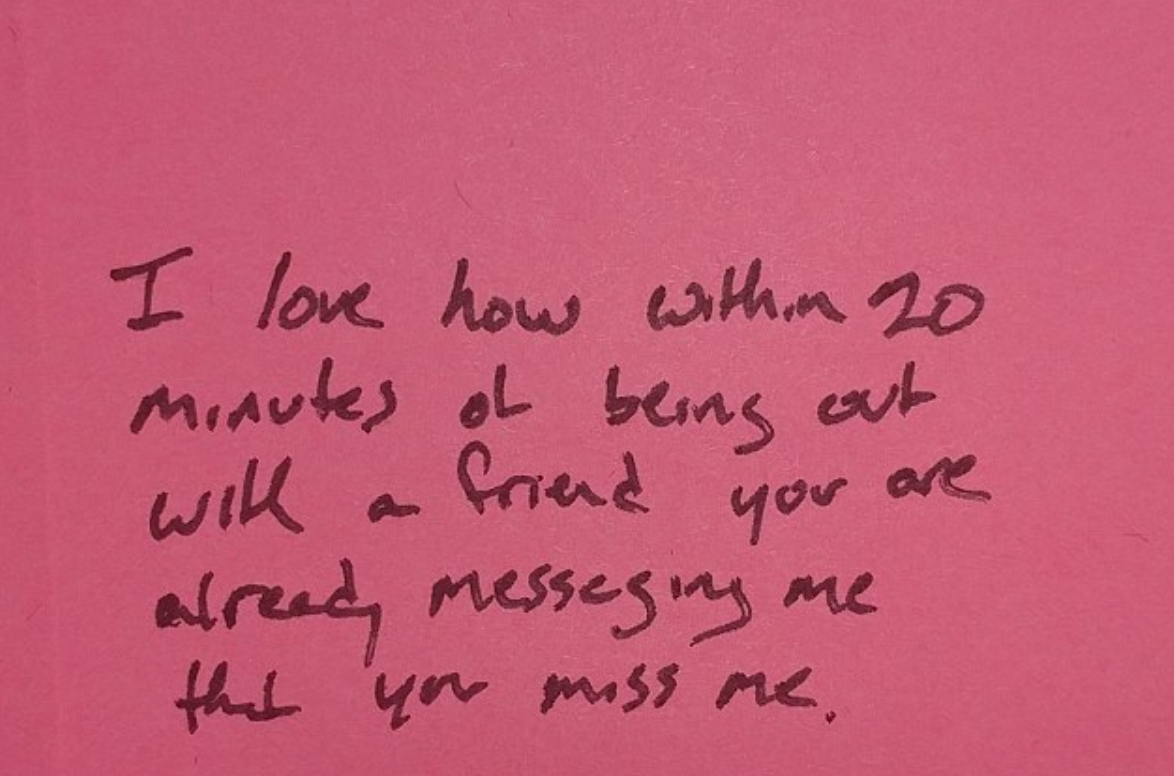 I love how within 20
minutes of being out
with a friend you are
already messeging me
that you miss me.